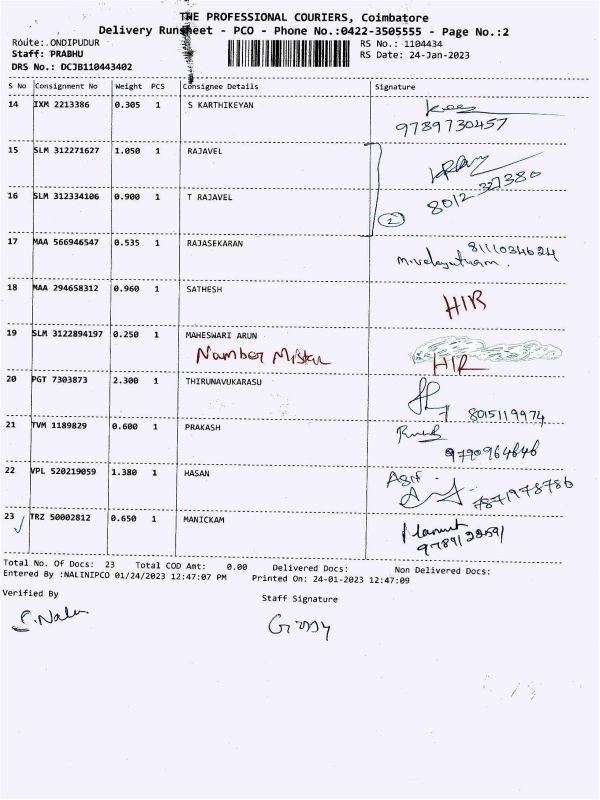 THE PROFESSIONAL COURIERS, Coimbatore
Delivery Runsheet - PCO - Phone No.:0422-3505555 - Page No.:2
Route: ONDIPUDUR RS No.: 1104434
Staff: PRABHU RS Date: 24-Jan-2023
DRS No.: DCJB110443402
S No Consignment No Weight PCS Consignee Details Signature
14 IXM 2213386 0.305 1 S KARTHIKEYAN
9789730457
15 SLM 312271627 1.050 1 RAJAVEL
16 SLM 312334106 0.900 1 T RAJAVEL 8012 327380
2
17 MAA 566946547 0.535 1 RAJASEKARAN 8111034624
m.velayutham.
18 MAA 294658312 0.960 1 SATHESH HIR
19 SLM 3122894197 0.250 1 MAHESWARI ARUN
Number HIR
20 PGT 7303873 2.300 1 THIRUNAVUKARASU
8015119974
21 TVM 1189829 0.600 1 PRAKASH
9790964646
22 VPL 520219059 1.380 1 HASAN Asif
7871978786
23 TRZ 50002812 0.650 1 MANICKAM
Total No. Of Docs: 23 Total COD Amt: 0.00 Delivered Docs: Non Delivered Docs:
Entered By :NALINIPCO 01/24/2023 12:47:07 PM Printed On: 24-01-2023 12:47:09
Verified By Staff Signature